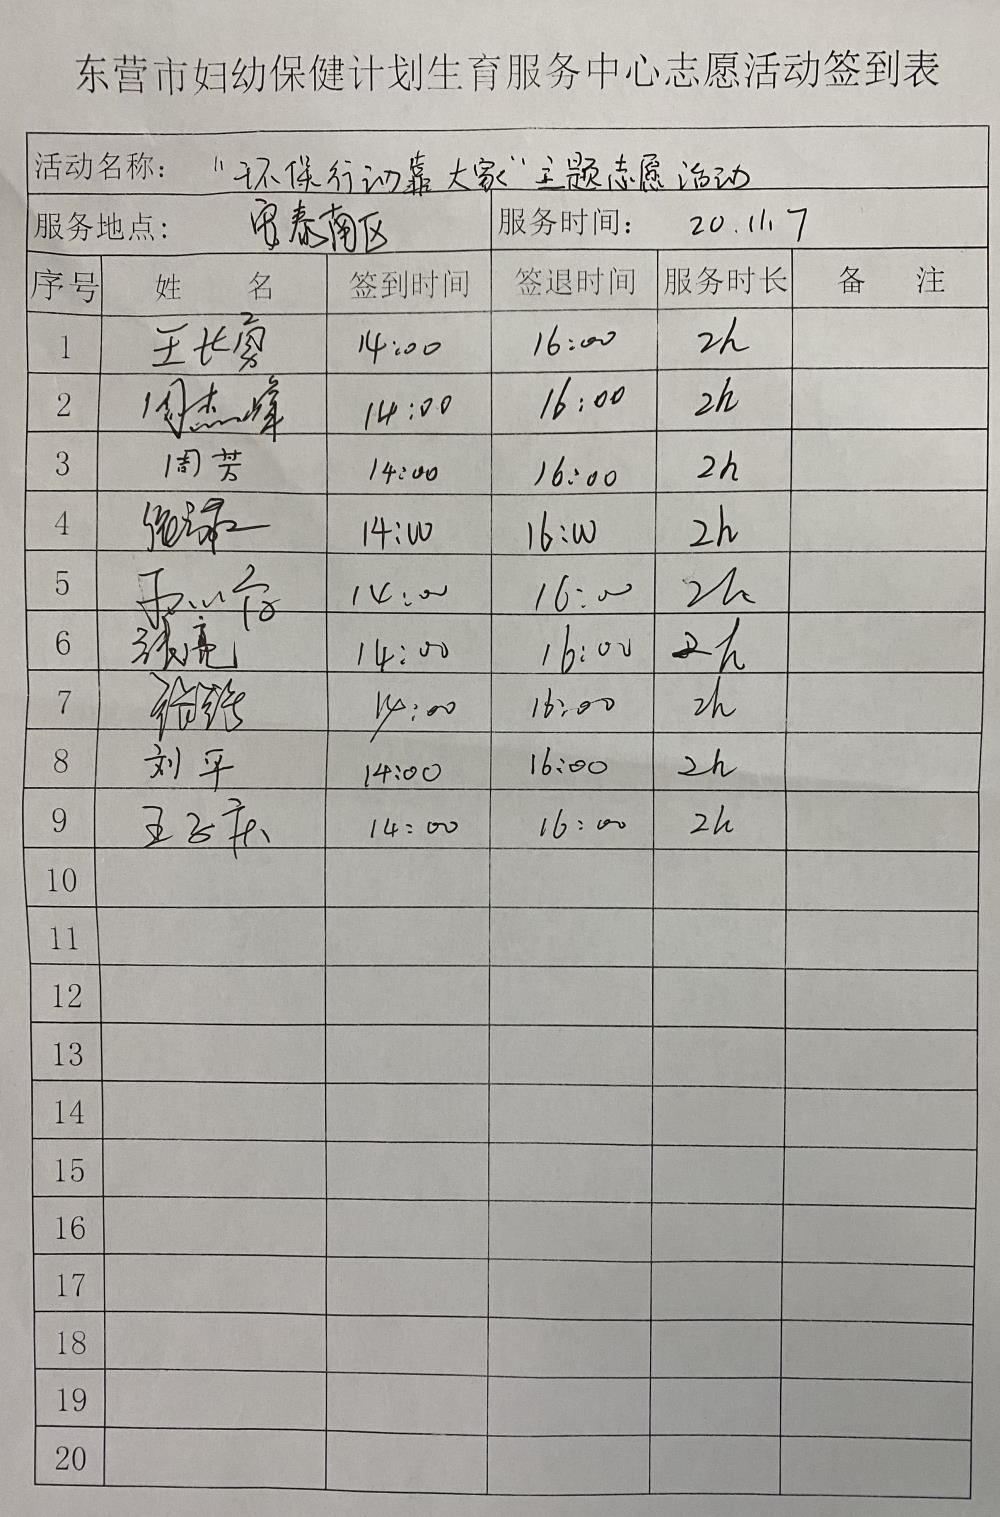 东营市妇幼保健计划生育服务中心志愿活动签到表
活动名称： “环保行动靠大家”主题志愿活动
服务地点： 泰南区 服务时间： 20.11.7
序号 姓 名 签到时间 签退时间 服务时长 备 注
1 王长勇 14:00 16:00 2h
2 周杰峰 14:00 16:00 2h
3 周芳 14:00 16:00 2h
4 14:00 16:00 2h
5 14:00 16:00 2h
6 张亮 14:00 16:00 2h
7 14:00 16:00 2h
8 刘平 14:00 16:00 2h
9 王 14:00 16:00 2h
10
11
12
13
14
15
16
17
18
19
20